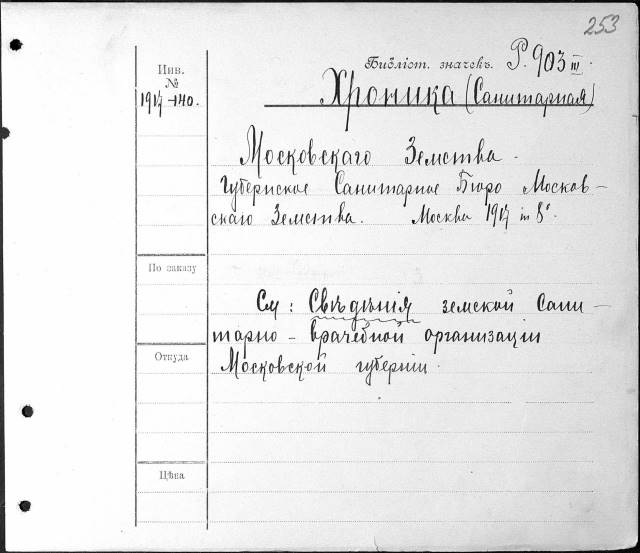 253
Библіот. значекъ. Р. 903 III.
Инв.
№
1917-140.
Хроника (Санитарная)
Московскаго Земства.
Губернское Санитарное Бюро Москов-
скаго Земства. Москва 1917 in 8°.
По заказу
См: Свѣдѣнія земской Сани-
тарно-врачебной организаціи
Откуда
Московской губерніи.
Цѣна